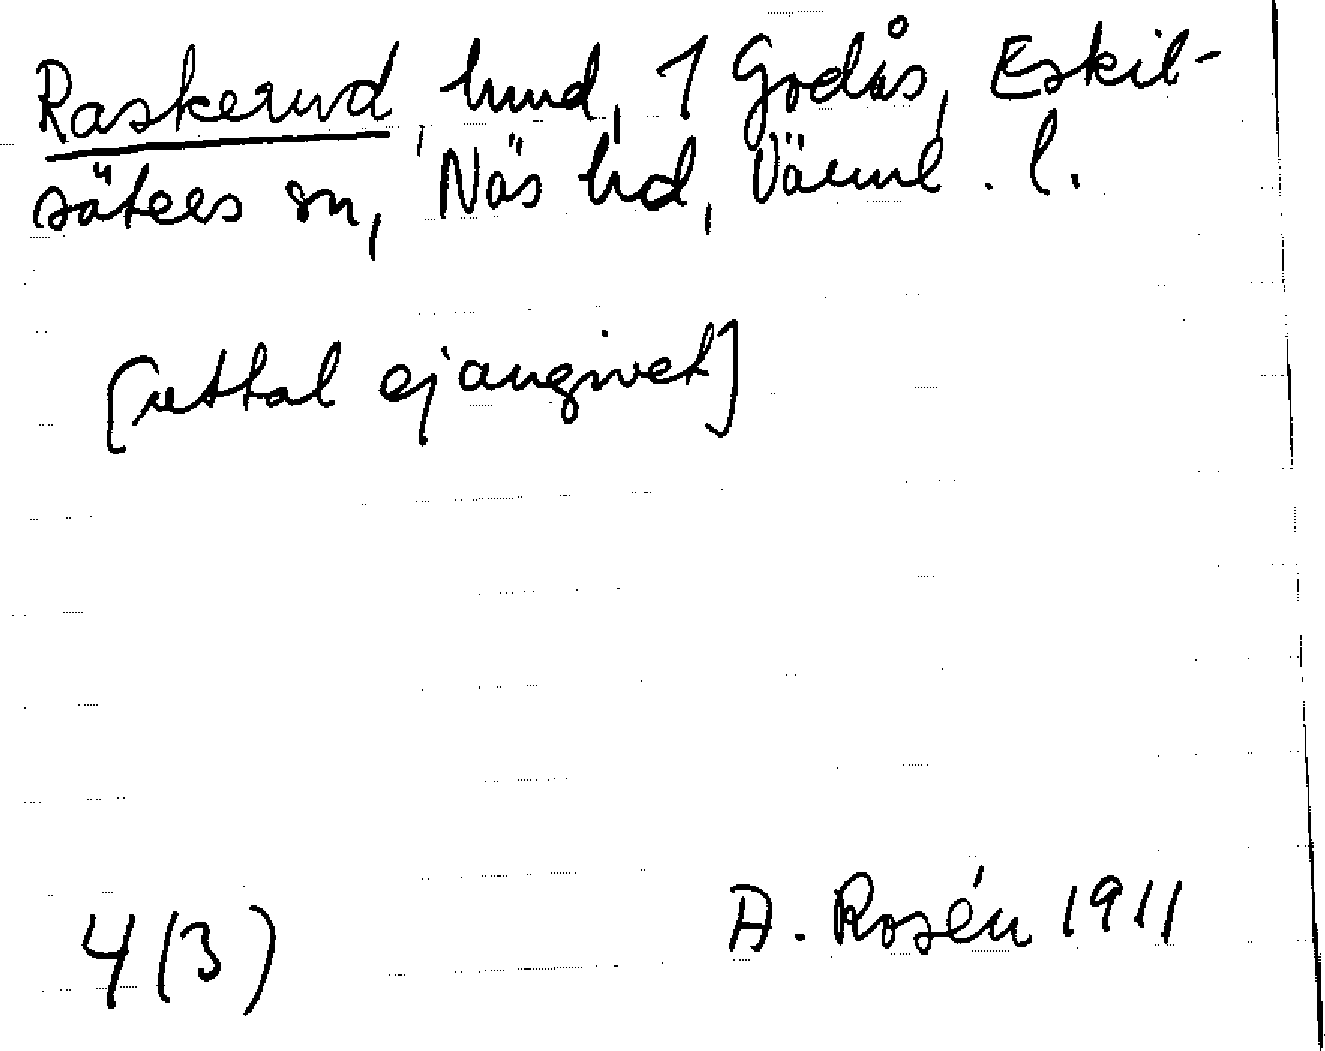 Raskerud, hmd, 1 Grdås, Eskil-
säters sn, Näs hd, Värml. l.
[uttal ej angivet]
4(3) A. Rosén 1911